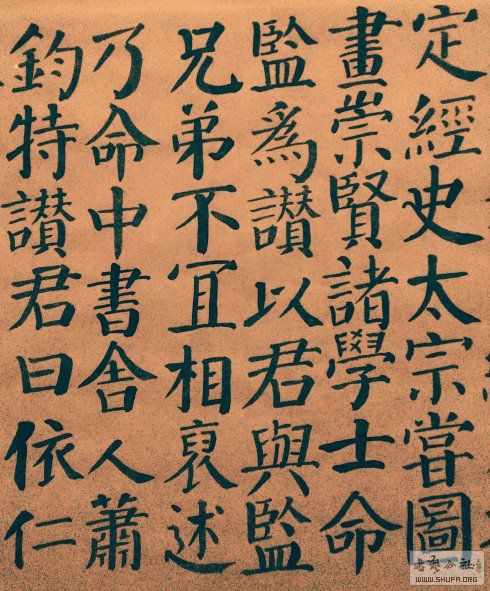 定經史太宗甞圖
畫崇賢諸學士命
監爲讃以君與監
兄弟不冝相裒述
乃命中書舍人蕭
鈞特讃君曰依仁
WWW.SHUFA.ORG